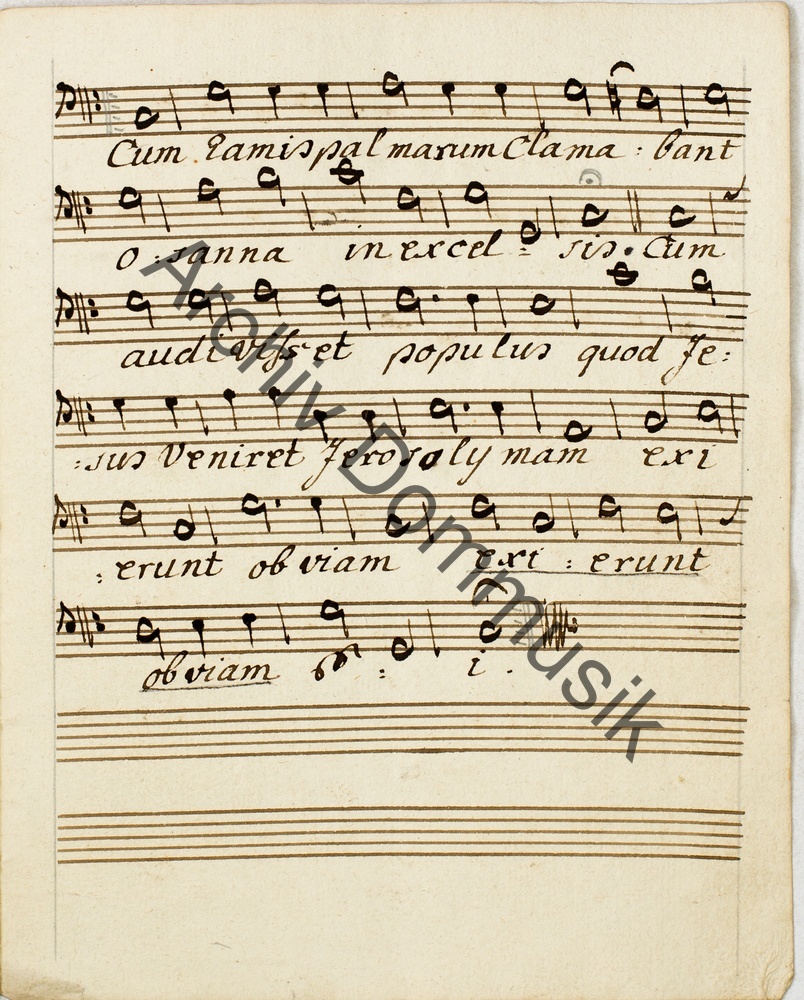 Cum Ramis palmarum Clama : bant
o : sanna in excel = sis. Cum
audivisset populus quod Je:
:sus Veniret Jerosolymam exi
: erunt obviam exi : erunt
obviam : i .
Archiv Dommusik